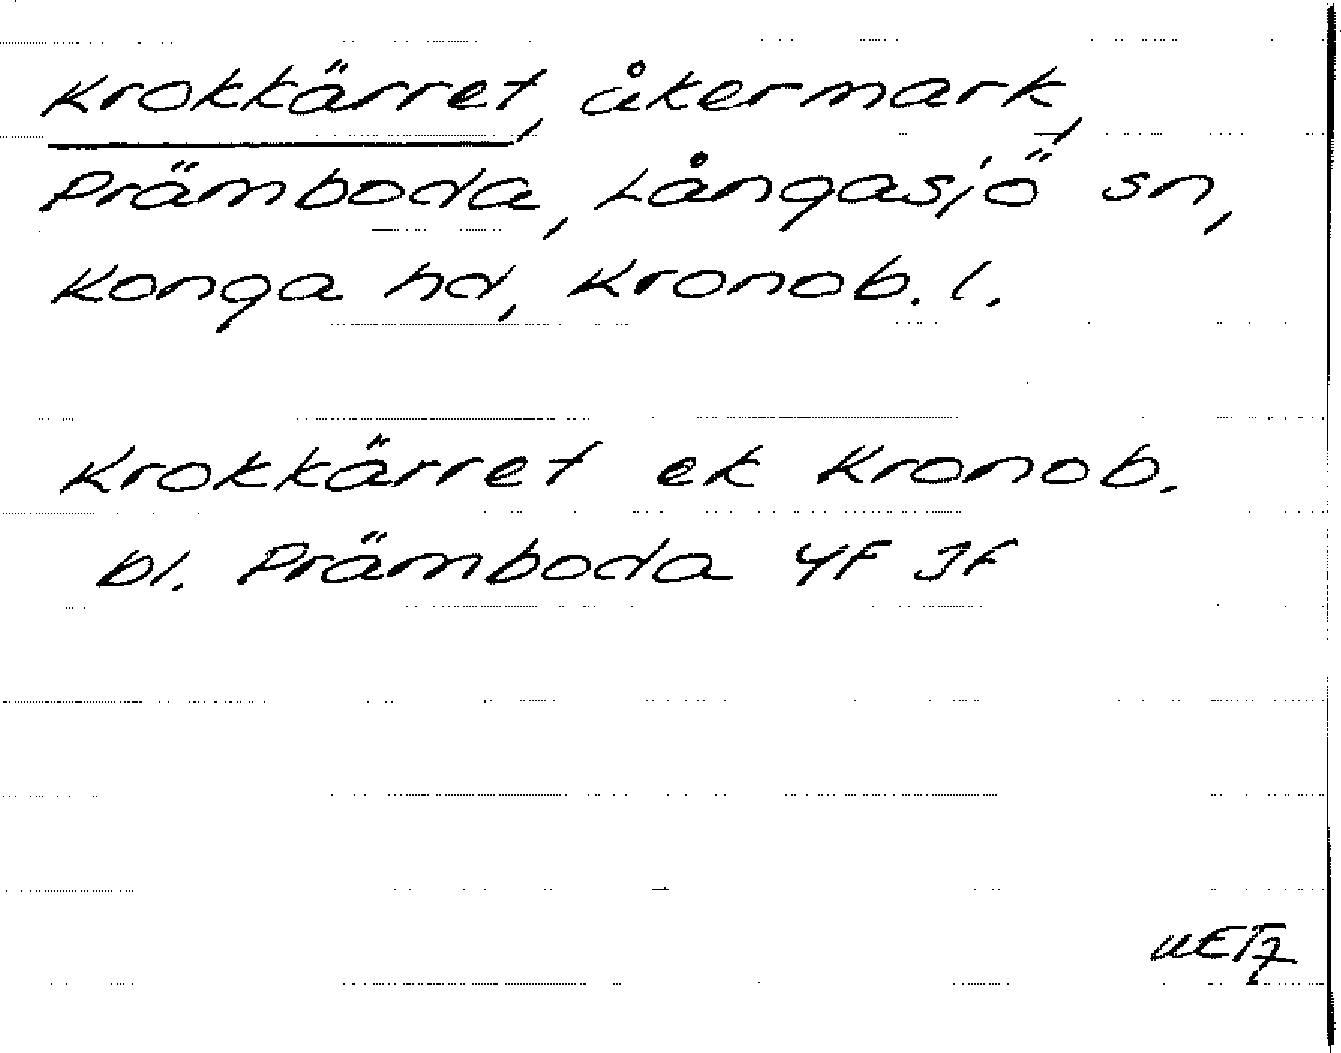 Krokkärret, åkermark,
Prämboda, Långasjö sn,
Konga hd, Kronob. l.
Krokkärret ek Kronob.
bl. Prämboda 4F 3F